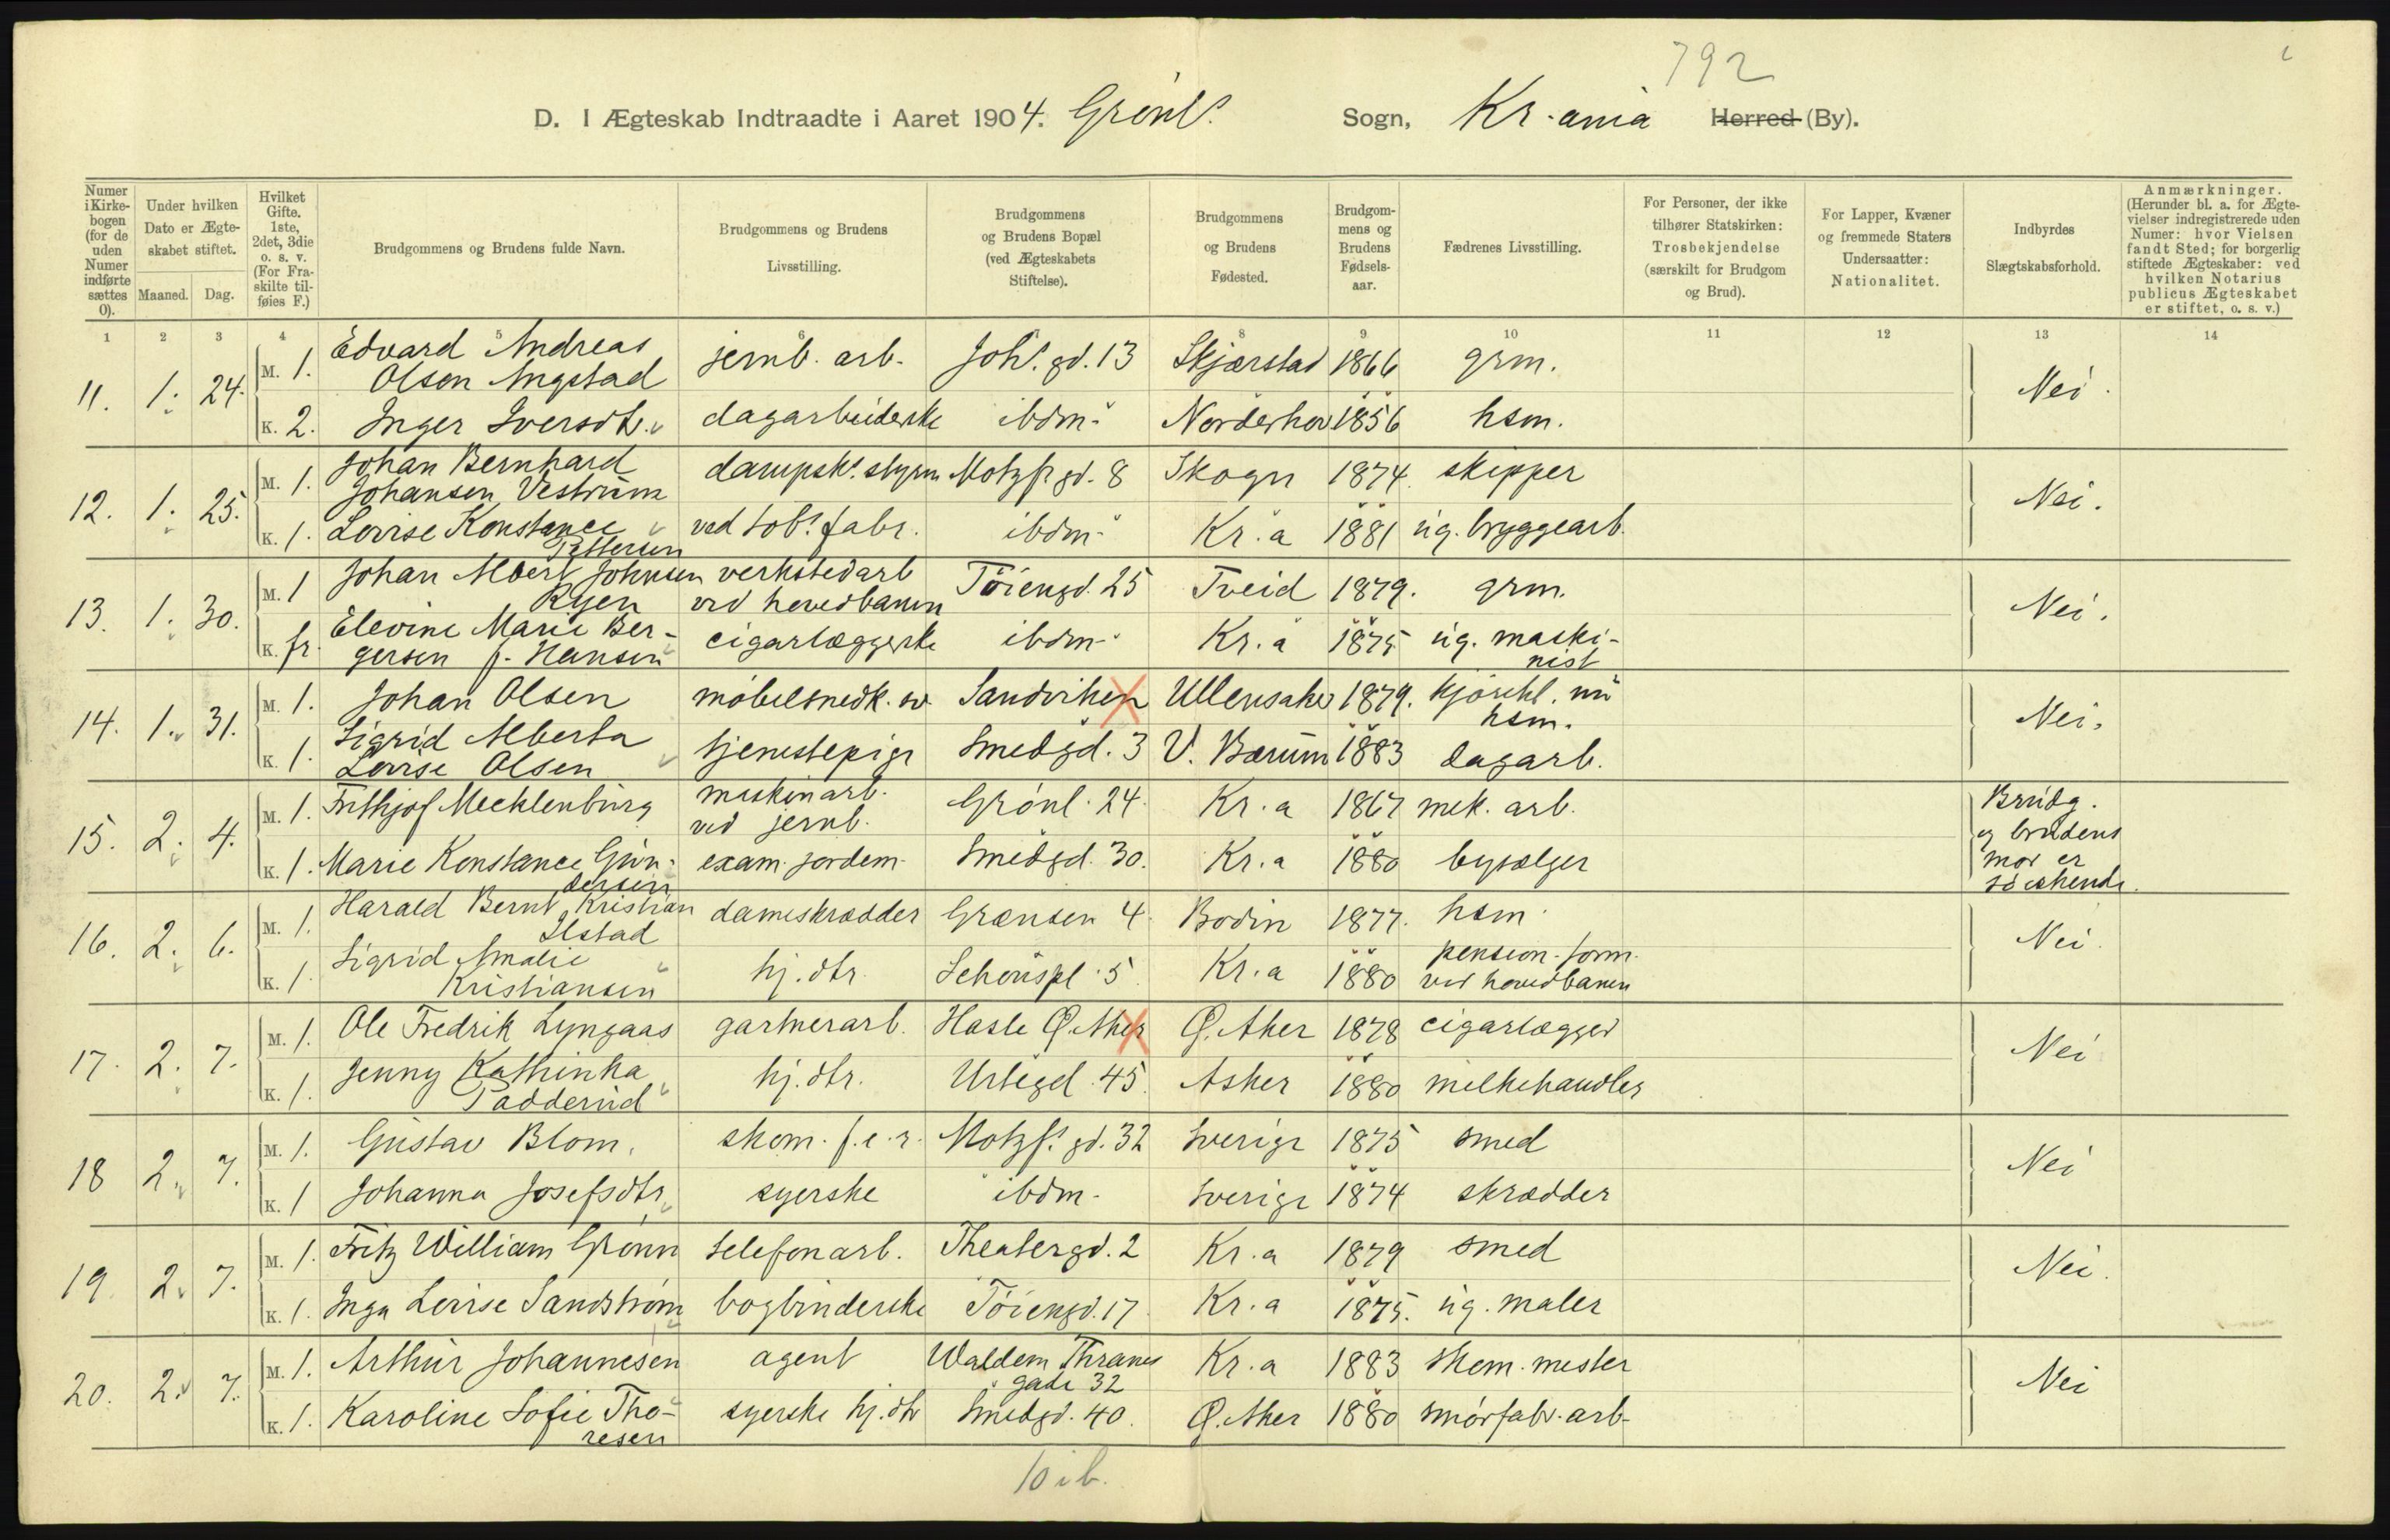 792
D. I Ægteskab Indtraadte i Aaret 1904. Grønl. Sogn, Kr.ania Herred (By).
Numer i Kirkebogen (for de uden Numer indførte sættes 0).
Under hvilken Dato er Ægteskabet stiftet.
Maaned. Dag.
Hvilket Gifte. 1ste, 2det, 3die o. s. v. (For Fraskilte tilføies F.)
Brudgommens og Brudens fulde Navn.
Brudgommens og Brudens Livsstilling.
Brudgommens og Brudens Bopæl (ved Ægteskabets Stiftelse).
Brudgommens og Brudens Fødested.
Brudgommens og Brudens Fødselsaar.
Fædrenes Livsstilling.
For Personer, der ikke tilhører Statskirken: Trosbekjendelse (særskilt for Brudgom og Brud).
For Lapper, Kvæner og fremmede Staters Undersaatter: Nationalitet.
Indbyrdes Slægtskabsforhold.
Anmærkninger. (Herunder bl. a. for Ægtevielser indregistrerede uden Numer: hvor Vielsen fandt Sted; for borgerlig stiftede Ægteskaber: ved hvilken Notarius publicus Ægteskabet er stiftet, o. s. v.)
1 2 3 4 5 6 8 9 10 11 12 13 14
11. 1. 24. M. 1. Edvard Andreas Olsen Angstad jernb. arb. Johs. gd. 13 Skjærstad 1866 grm. Nei.
K. 2. Inger Iversdtr. dagarbeiderske ibdm. Norderhov 1856 hsm.
12. 1. 25. M. 1. Johan Bernhard Johansen Vestrum dampsk. styrm Motzf. gd. 8 Skogn 1874. skipper Nei.
K. 1. Lovise Konstance Pettersen ved tob. fabr. ibdm. Kr.a 1881 ug. bryggearb.
13. 1. 30. M. 1 Johan Albert Johnsen Ryen verkstedarb ved hovedbanen Töiengd. 25 Tveid 1879. grm. Nei.
K. fr. Elevine Marie Bergersen f. Hansen cigarlæggerske ibdm. Kr.a 1875 ug. maskinist
14. 1. 31. M. 1. Johan Olsen möbelsnedk. sv. Sandviken Ullensaker 1879. kjörekl. nu hsm. Nei.
K. 1. Sigrid Alberta Lovise Olsen tjenestepige Smedgd. 3 V. Bærum 1883 dagarb.
15. 2. 4. M. 1. Frithjof Mecklenburg maskinarb. ved jernb. Grönl. 24. Kr.a 1867 mek. arb. Brudg. og brudens mor er söskende.
K. 1. Marie Konstance Gundersen exam. jordem. Smedgd. 30. Kr.a 1880 bysælger
16. 2. 6. M. 1. Harald Bernt Kristian Ilstad dameskrædder Grænsen 4. Bodin 1877. hsm. Nei.
K. 1. Sigrid Amalie Kristiansen hj. dtr. Schouspl. 5. Kr.a 1880 pension. form. ved hovedbanen
17. 2. 7. M. 1. Ole Fredrik Lyngaas gartnerarb. Hasle Ø. Aker Ø. Aker 1878 cigarlægger Nei
K. 1. Jenny Kathinka Padderud hj. dtr. Urtegd. 45. Asker 1880 melkehandler
18 2. 7. M. 1. Gustav Blom. skom. f. e. r. Motzf. gd. 32 Sverige 1875 smed Nei
K. 1 Johanna Josefsdtr. syerske ibdm. Sverige 1874 skrædder
19. 2. 7. M. 1. Fritz William Grönn telefonarb. Theatergd. 2 Kr.a 1879 smed Nei.
K. 1. Inga Lovise Sandström bogbinderske Töiengd. 17. Kr.a 1875. ug. maler
20. 2. 7. M. 1. Arthur Johannesen agent Waldem Thranes gade 32 Kr.a 1883 skom. mester Nei
K. 1. Karoline Sofie Thoresen syerske hj. dtr Smedgd. 40. Ø. Aker 1880 smörfabr. arb.
10 ib.